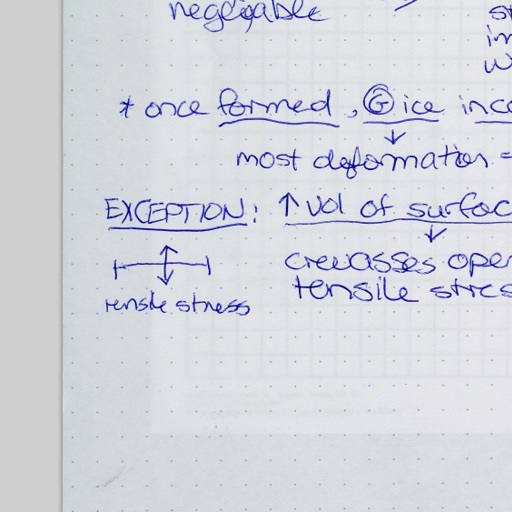 negligable
* once formed, Ⓖ ice inc
↓
most deformation =
EXCEPTION: ↑ vol of surfac
↓
crevasses ope
tensile stres
tensile stress